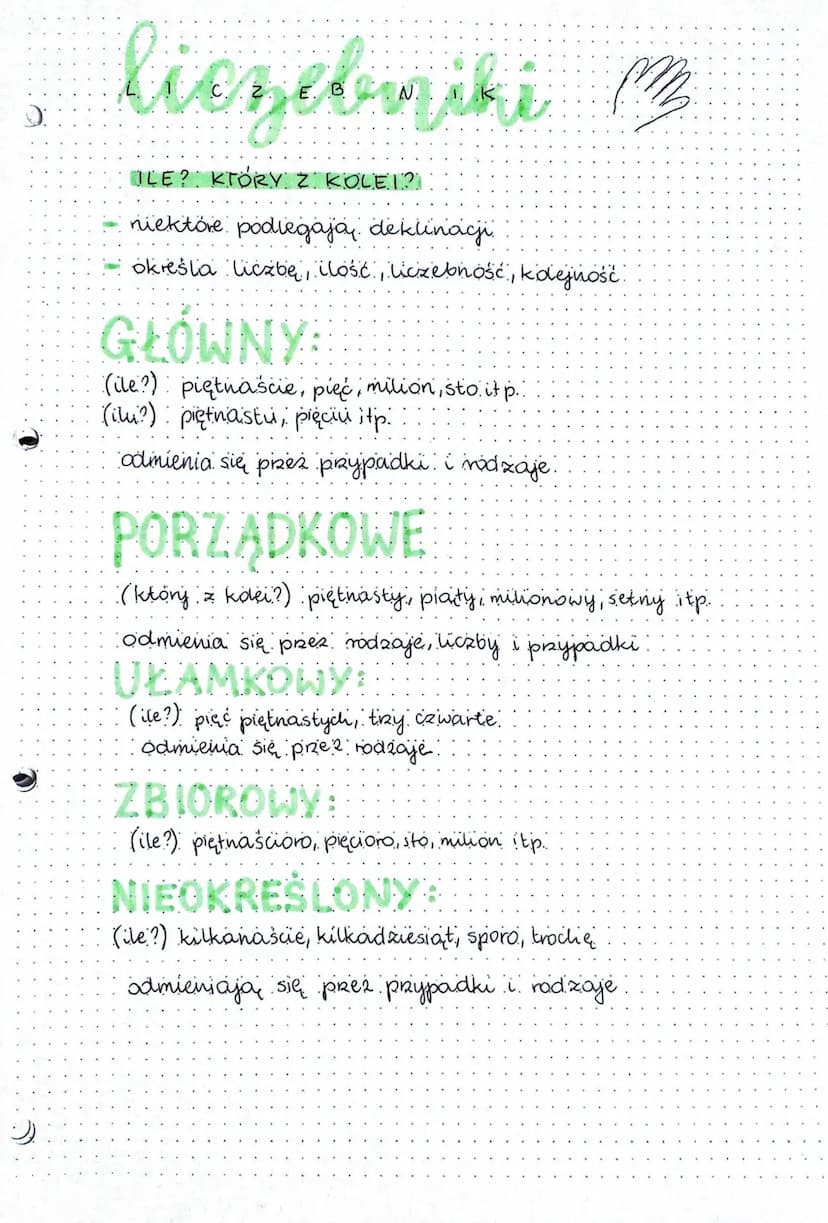 liczebniki
LICZEBNIK
ILE? KTÓRY Z KOLEI?
- niektóre podlegają deklinacji
- określa liczbę, ilość, liczebność, kolejność
GŁÓWNY:
(ile?) piętnaście, pięć, milion, sto itp.
(ilu?) piętnastu, pięciu itp.
odmienia się przez przypadki i rodzaje.
PORZĄDKOWE
(który z kolei?) piętnasty, piąty, milionowy, setny itp.
odmienia się przez rodzaje, liczby i przypadki.
UŁAMKOWY:
(ile?) pięć piętnastych, trzy czwarte.
odmienia się przez rodzaje.
ZBIOROWY:
(ile?) piętnaścioro, pięcioro, sto, milion itp.
NIEOKREŚLONY:
(ile?) kilkanaście, kilkadziesiąt, sporo, trochę
odmieniają się przez przypadki i rodzaje